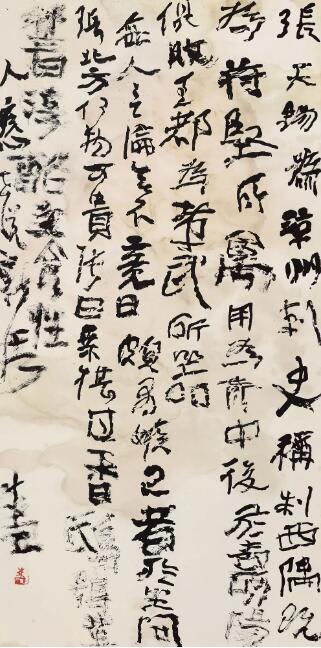 張天錫為涼州刺史稱制西隅既
為苻堅所禽用為侍中後於壽陽
俱敗至都為孝武所器
每入言論無不竟日頗有嫉己者於坐問
張北方何物可貴張曰桑椹甘香鴟鴞革
響淳酪養性
人